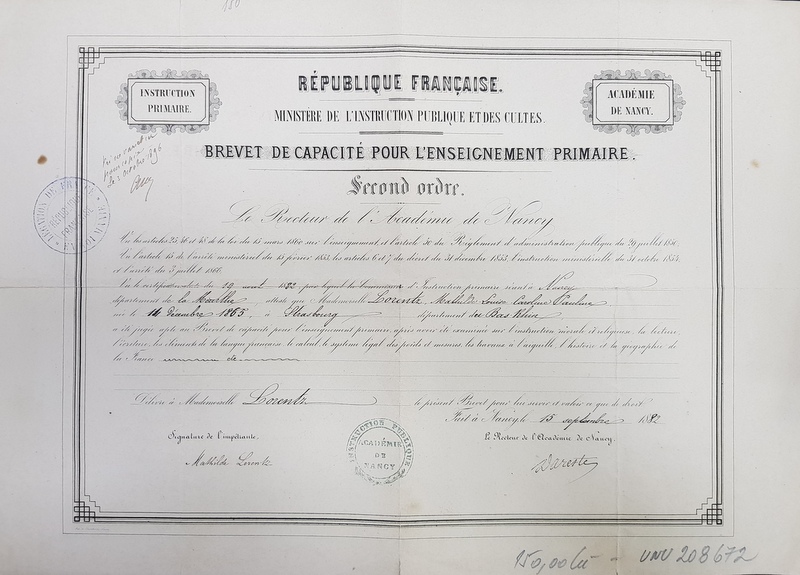 130
RÉPUBLIQUE FRANÇAISE.
INSTRUCTION
PRIMAIRE.
ACADÉMIE
DE NANCY.
MINISTÈRE DE L'INSTRUCTION PUBLIQUE ET DES CULTES.
BREVET DE CAPACITÉ POUR L'ENSEIGNEMENT PRIMAIRE.
Second ordre.
Le Recteur de l'Académie de Nancy
Vu les articles 25, 46 et 48 de la loi du 15 mars 1850 sur l'enseignement et l'article 50 du Règlement d'administration publique du 29 juillet 1850.
Vu l'article 15 de l'arrêté ministériel du 15 février 1853, les articles 6 et 7 du décret du 31 décembre 1853, l'instruction ministérielle du 31 octobre 1854,
et l'arrêté du 3 juillet 1866.
Vu le certificat en date du 19 août 1882 par lequel la Commission d'Instruction primaire séant à Nancy
département de la Meurthe atteste que Mademoiselle Lorentz, Mathilde Louise Caroline Pauline
née le 14 Décembre 1865, à Strasbourg département du Bas Rhin
a été jugée apte au Brevet de capacité pour l'enseignement primaire après avoir été examinée sur l'instruction morale et religieuse, la lecture,
l'écriture, les éléments de la langue française, le calcul, le système légal des poids et mesures, les travaux à l'aiguille, l'histoire et la géographie de
la France
Délivre à Mademoiselle Lorentz le présent Brevet pour lui servir et valoir ce que de droit.
Fait à Nancy le 15 septembre 1882
Signature de l'impétrante,
Le Recteur de l'Académie de Nancy
Mathilde Lorentz
Dareste
INSTRUCTION PUBLIQUE
ACADÉMIE
DE
NANCY
RÉPUBLIQUE
FRANÇAISE
150,00 lei - UNU 208672